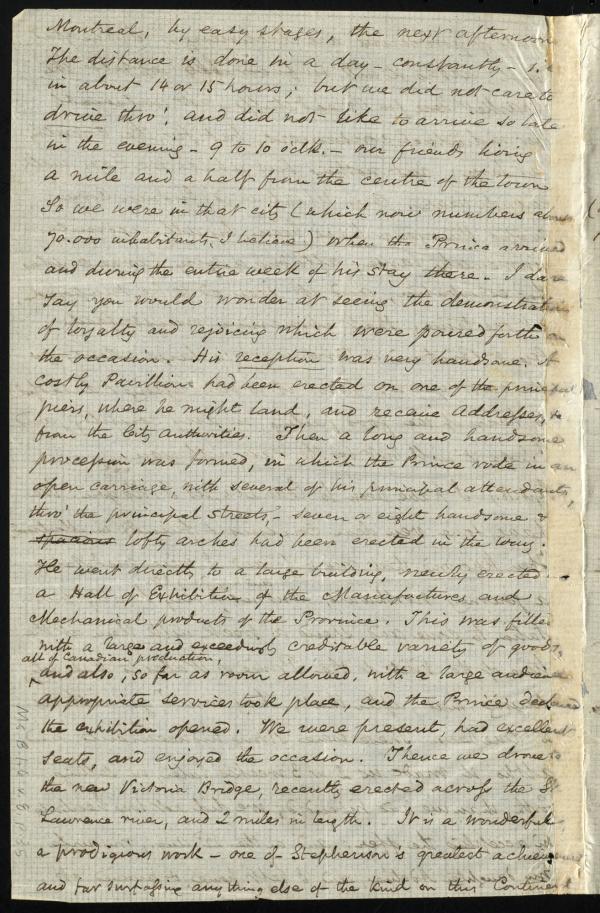 Montreal, by easy stages, the next afternoon
The distance is done in a day – constantly – i.e
in about 14 or 15 hours; but we did not care to
drive thro', and did not like to arrive so late
in the evening – 9 to 10 o'clk. – our friends living
a mile and a half from the centre of the town
So we were in that city (which now numbers about
70.000 inhabitants, I believe) when the Prince arrived
and during the entire week of his stay there. I dare
say you would wonder at seeing the demonstrations
of loyalty and rejoicing which were poured forth on
the occasion. His reception was very handsome. A
costly Pavillion had been erected on one of the principal
piers, where he might land, and receive Addresses, &
from the City authorities. Then a long and handsome
procession was formed, in which the Prince rode in an
open carriage, with several of his principal attendants,
thro' the principal streets, – seven or eight handsome &
spacious lofty arches had been erected in the way.
He went directly to a large building, newly erected –
a Hall of Exhibition of the Manufactures and
Mechanical products of the Province. This was filled
with a large and exceedingly creditable variety of goods,
all of Canadian production,
and also, so far as room allowed, with a large audience
appropriate services took place, and the Prince declared
the exhibition opened. We were present, had excellent
seats, and enjoyed the occasion. Thence we drove to
the new Victoria Bridge, recently erected across the St
Lawrence river, and 2 miles in length. It is a wonderful,
a prodigious work – one of Stephenson's greatest achievements
and far surpassing anything else of the kind on this Continent